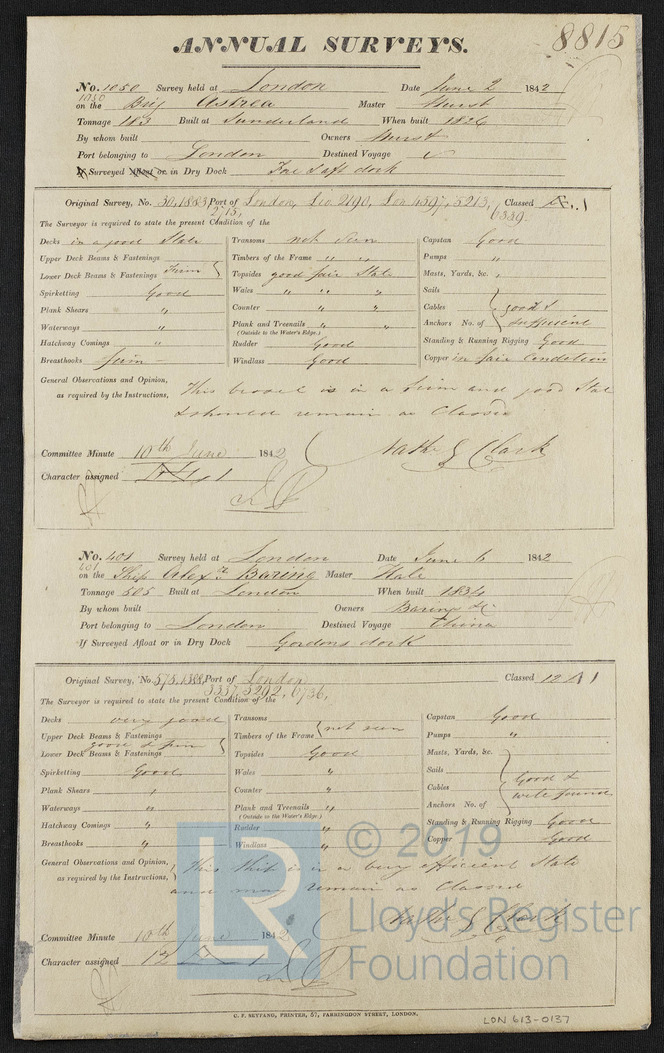 8815
ANNUAL SURVEYS.
No. 1050 Survey held at London Date June 2 1842
1050
on the Brig Astrea Master Hurst
Tonnage 183 Built at Sunderland When built 1826
By whom built Owners Hurst
Port belonging to London Destined Voyage
If Surveyed Afloat or in Dry Dock dock
Original Survey, No. 50, 1883, Port of London, 2490, Lon 4397, 5213, Classed Æ. 1
2715, 6339
The Surveyor is required to state the present Condition of the
Decks in a good State Transoms not seen Capstan Good
Upper Deck Beams & Fastenings Timbers of the Frame " " Pumps "
Lower Deck Beams & Fastenings firm Topsides good fair State Masts, Yards, &c. "
Spirketting Good Wales " " " Sails
Plank Shears " Counter " " Cables good &
Waterways " Plank and Treenails " " Anchors No. of sufficient
(Outside to the Water's Edge.)
Hatchway Comings " Rudder Good Standing & Running Rigging Good
Breasthooks firm Windlass Good Copper in fair Condition
General Observations and Opinion, This vessel is in a firm and good State
as required by the Instructions, & should remain as Classed
Committee Minute 10th June 1842 Nathl G Clark
Character assigned Æ 1
No. 401 Survey held at London Date June 6 1842
401
on the Ship Alexr Baring Master Hale
Tonnage 505 Built at London When built 1834
By whom built Owners Baring & Co
Port belonging to London Destined Voyage China
If Surveyed Afloat or in Dry Dock Gordons dock
Original Survey, No. 575, 1388, Port of London Classed 12 A 1
3337, 5292, 6736,
The Surveyor is required to state the present Condition of the
Decks very good Transoms Capstan Good
Upper Deck Beams & Fastenings Timbers of the Frame not seen Pumps "
good & firm
Lower Deck Beams & Fastenings Topsides Good Masts, Yards, &c.
Spirketting Good Wales " Sails
Plank Shears " Counter " Cables Good &
Waterways " Plank and Treenails " Anchors No. of well found
(Outside to the Water's Edge.)
Hatchway Comings " Rudder " Standing & Running Rigging Good
Breasthooks " Windlass " Copper Good
General Observations and Opinion, This Ship is in a very efficient State
as required by the Instructions, and may remain as Classed
Nathl G Clark
Committee Minute 10th June 1842
Character assigned 12 A 1
LR © 2019
Lloyd's Register
Foundation
C. F. SEYFANG, PRINTER, 57, FARRINGDON STREET, LONDON.
LON 613-0137